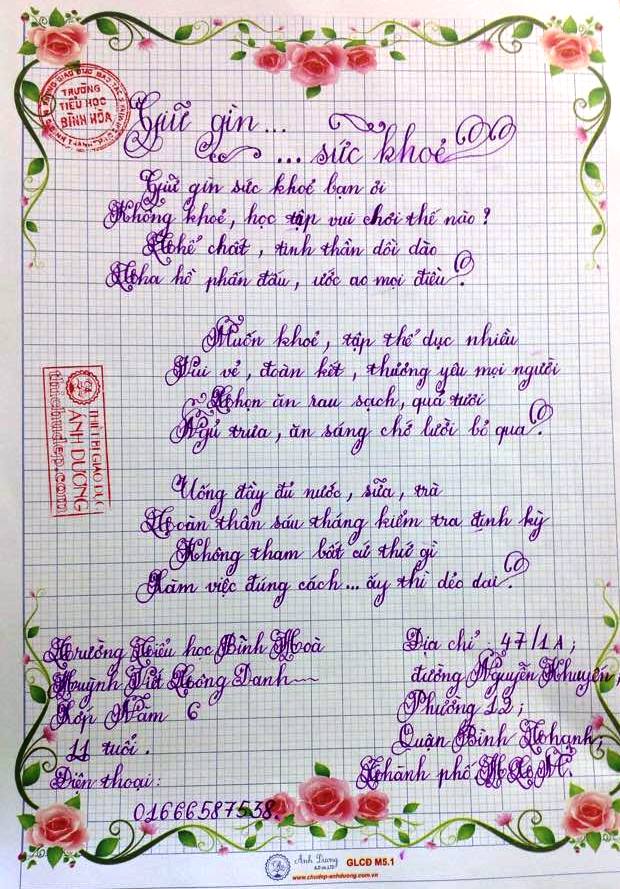 TRƯỜNG
TIỂU HỌC
BÌNH HÒA
Giữ gìn...
... sức khoẻ
Giữ gìn sức khoẻ bạn ơi
Không khoẻ, học tập vui chơi thế nào?
Thể chất, tinh thần dồi dào
Tha hồ phấn đấu, ước ao mọi điều.
Muốn khoẻ, tập thể dục nhiều
Vui vẻ, đoàn kết, thương yêu mọi người
Chọn ăn rau sạch, quả tươi
Ngủ trưa, ăn sáng chớ lười bỏ qua.
Uống đầy đủ nước, sữa, trà
Toàn thân sáu tháng kiểm tra định kỳ
Không tham bất cứ thứ gì
Làm việc đúng cách... ấy thì dẻo dai.
THIẾT BỊ GIÁO DỤC
ÁNH DƯƠNG
Trường Tiểu học Bình Hoà
Huỳnh Viết Công Danh
Lớp Năm 6
11 tuổi.
Điện thoại:
01666587538.
Địa chỉ: 47/1A;
đường Nguyễn Khuyến;
Phường 12;
Quận Bình Thạnh;
Thành phố H.C.M.
Ánh Dương
GLCĐ M5.1
www.chudep-anhduong.com.vn